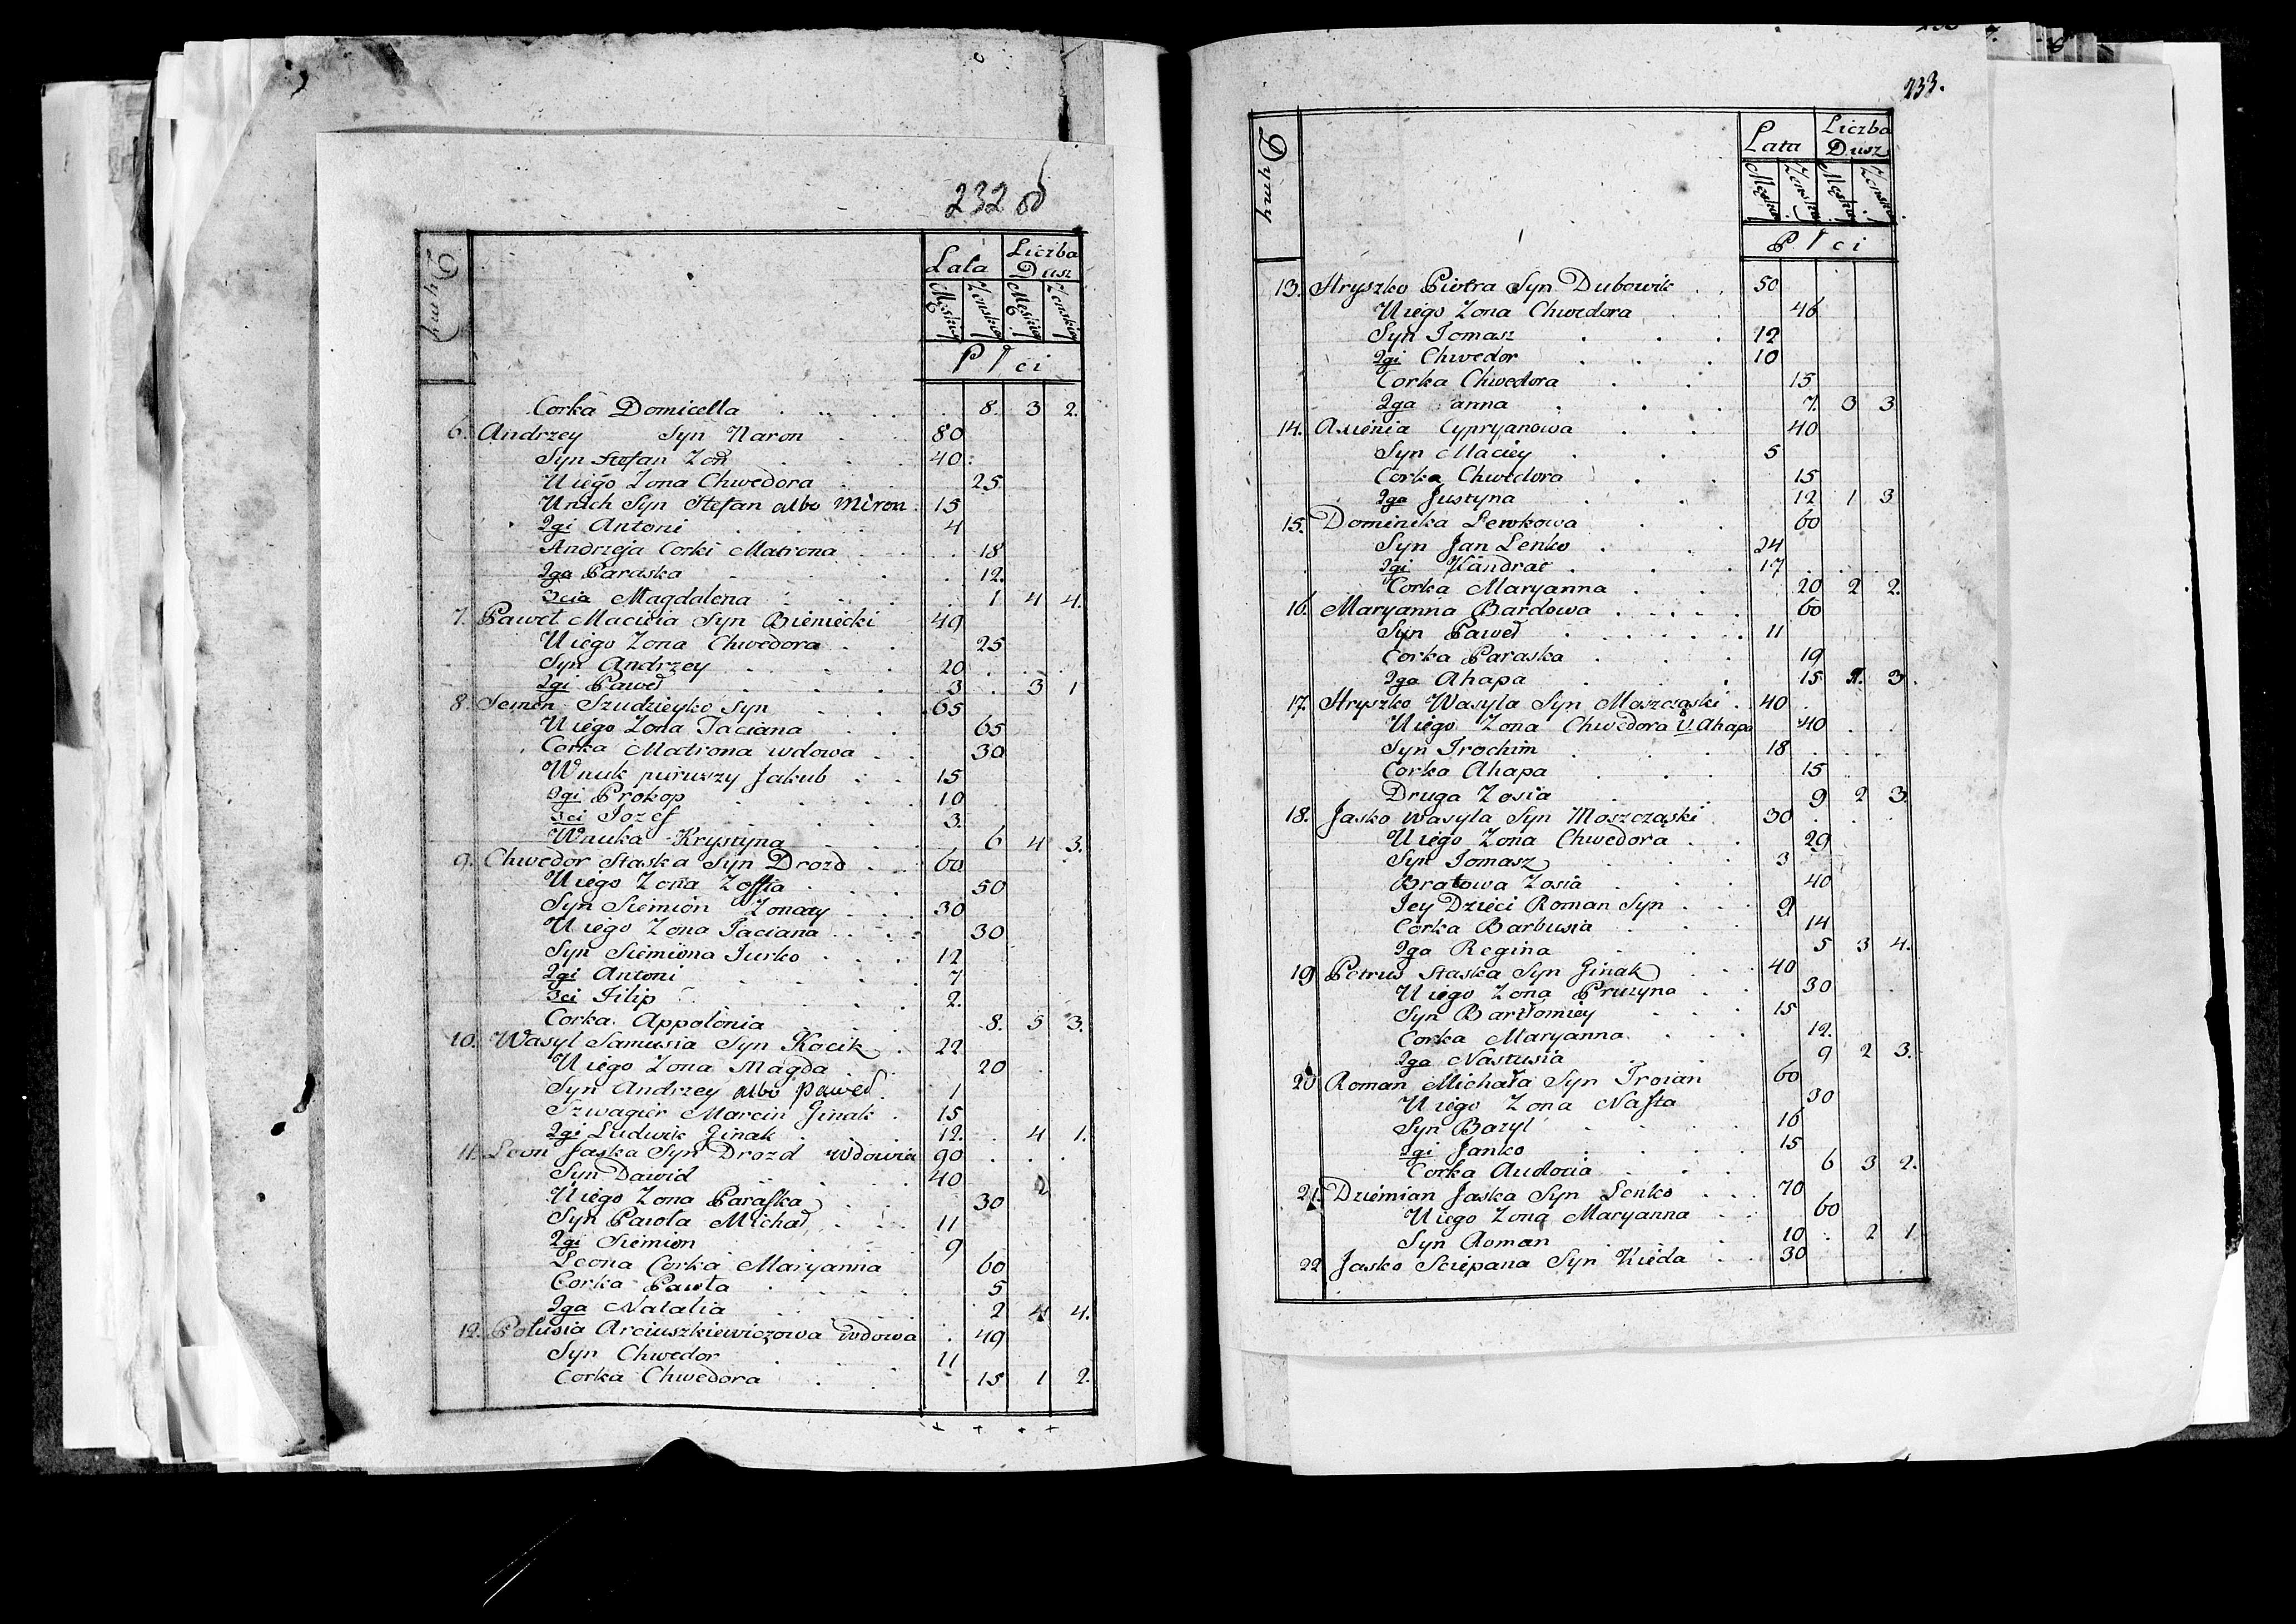 232 od
Dymy
Lata Liczba Dusz
Męskiey Zenskiey Męskiey Zenskiey
Płci
Corka Domicella 8. 3 2.
6. Andrzey Syn Naron 80
Syn Stefan Zon 40
U iego Zona Chwedora 25
U nich Syn Stefan albo Miron 15
2gi Antoni 4
Andrzeja Corki Matrona 18
2ga Paraska 12.
3cia Magdalena 1 4 4.
7. Paweł Macieia Syn Bieniecki 49
U iego Zona Chwedora 25
Syn Andrzey 20
2gi Paweł 3 3 1
8. Semen Szudzieyko Syn 65
U iego Zona Taciana 65
Corka Matrona wdowa 30
Wnuk pierwszy Jakub 15
2gi Prokop 10
3ci Jozef 3.
Wnuka Krystyna 6 4 3.
9. Chwedor Staska Syn Drozd 60
U iego Zona Zoffia 50
Syn Siemion Zonaty 30
U iego Zona Taciana 30
Syn Siemiona Jurko 12
2gi Antoni 7
3ci Filip 2.
Corka Appolonia 8. 5 3.
10. Wasyl Samusia Syn Kocik 22
U iego Zona Magda 20
Syn Andrzey albo Paweł 1
Szwagier Marcin Ginak 15
2gi Ludwik Ginak 12. 4 1.
11. Leon Jaska Syn Drozd wdowiec 90
Syn Dawid 40
U iego Zona Paraska 30
Syn Pawła Michał 11
2gi Siemion 9
Leona Corka Maryanna 60
Corka Pawła 5
2ga Natalia 2 4 4.
12. Polusia Arciuszkiewiczowa wdowa 49
Syn Chwedor 11
Corka Chwedora 15 1 2.
233.
Dymy
Lata Liczba Dusz
Męskiey Zenskiey Męskiey Zenskiey
Płci
13. Hryszko Piotra Syn Dubowik 50
U iego Zona Chwedora 46
Syn Tomasz 12
2gi Chwedor 10
Corka Chwedora 15
2ga anna 7. 3 3
14. Axienia Cypryanowa 40
Syn Maciey 5
Corka Chwedora 15
2ga Justyna 12 1 3
15. Dominika Lewkowa 60
Syn Jan Lenko 24
2gi Kandrat 17
Corka Maryanna 20 2 2.
16. Maryanna Bardowa 60
Syn Paweł 11
Corka Paraska 19
2ga Ahapa 15 1. 3.
17. Hryszko Wasyla Syn Moszcząski 40
U iego Zona Chwedora V. Ahapa 40
Syn Trochim 18
Corka Ahapa 15
Druga Zosia 9 2 3.
18. Jasko Wasyla Syn Moszcząski 30
U iego Zona Chwedora 29
Syn Tomasz 3
Bratowa Zosia 40
Jey Dzieci Roman Syn 2
Corka Barbusia 14
2ga Regina 5 3 4.
19 Petrus Staska Syn Ginak 40
U iego Zona Pruzyna 30
Syn Bartłomiey 15
Corka Maryanna 12.
2ga Nastusia 9 2 3.
20 Roman Michała Syn Troian 60
U iego Zona Nasta 30
Syn Bazyl 16
2gi Janko 15
Corka Audocia 6 3 2.
21. Dziemian Jaska Syn Lenko 70
U iego Zona Maryanna 60
Syn Roman 10 2 1
22 Jasko Sciepana Syn Kieda 30